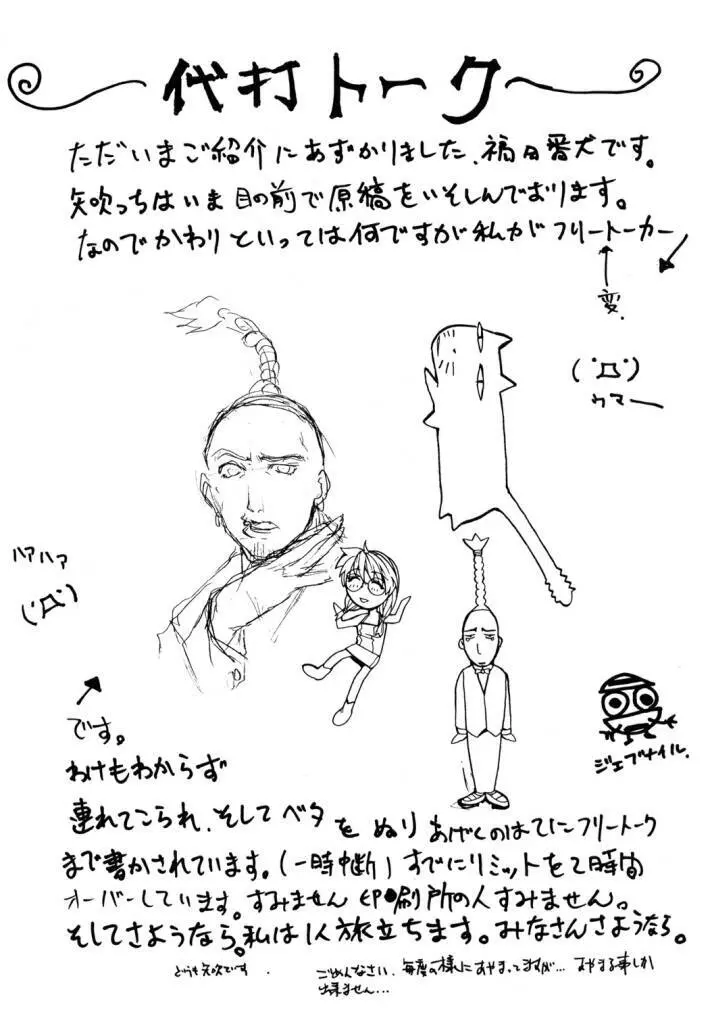 代打トーク
ただいまご紹介にあずかりました、福田番犬です。
矢吹っちはいま目の前で原稿をいそしんでおります。
なのでかわりといっては何ですが私がフリートーカー
変。
(゚Д゚)
ウマー
ハァハァ
(゚Д゚)
ジェブナイル.
です。
わけもわからず
連れてこられ、そしてベタをぬりあげくのはてにフリートーク
まで書かされています。(一時中断)すでにリミットを2時間
オーバーしています。すみません印刷所の人すみません。
そしてさようなら。私は1人旅立ちます。みなさんさようなら。
どうも矢吹です.
ごめんなさい.毎度の様にあやまってますが…あやまる事しか
出来ません...